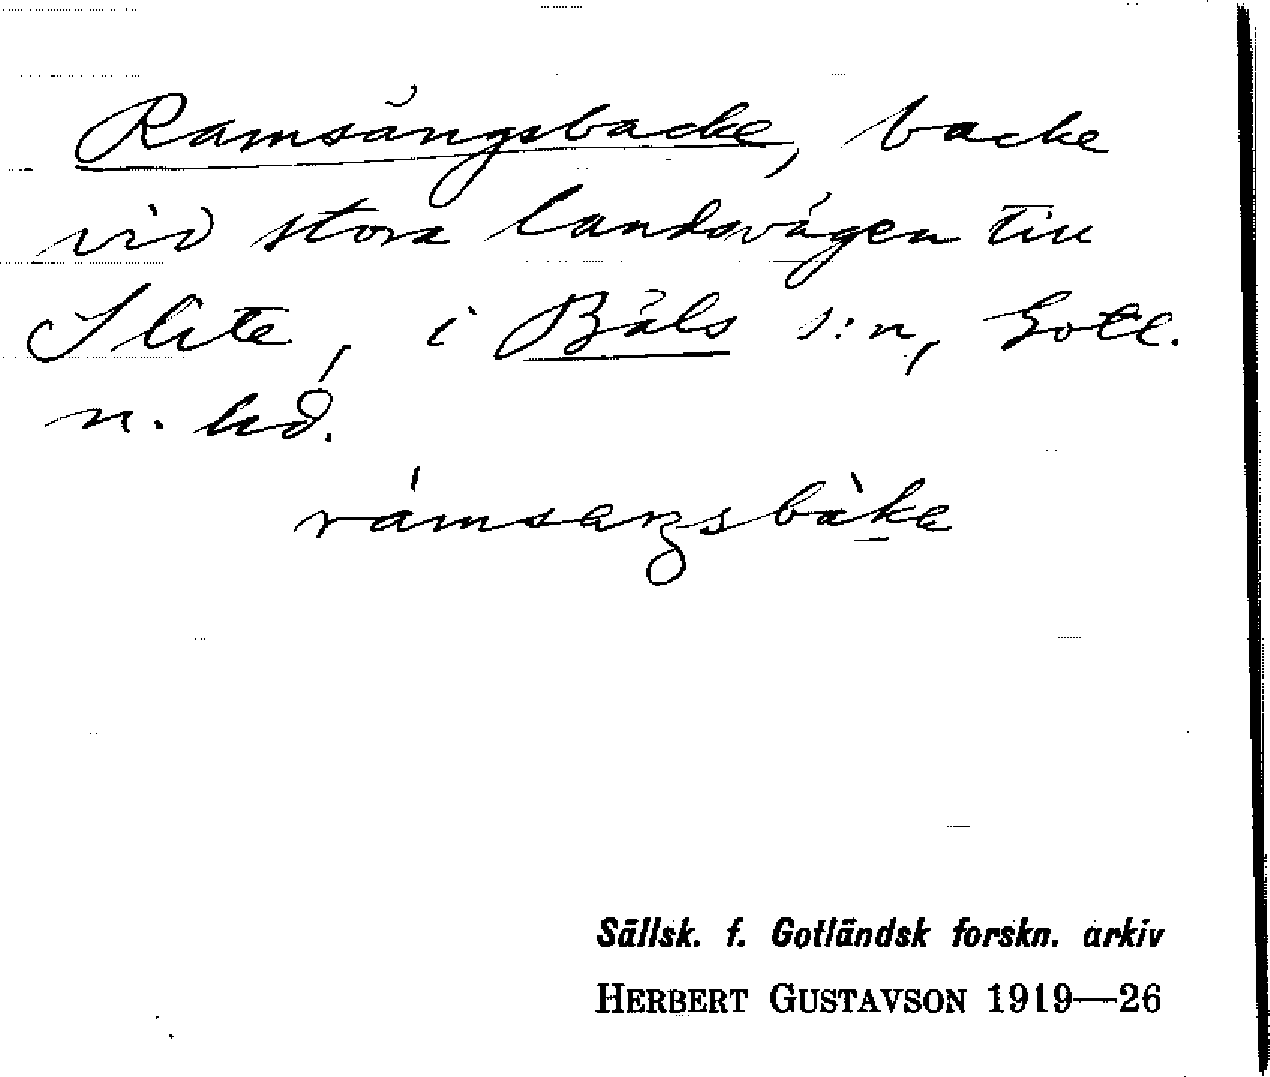 Ramsängsbacke, backe
vid stora landsvägen till
Slite, i Bäls s:n, Gotl.
n. hd.
rámsaŋsbàke
Sällsk. f. Gotländsk forskn. arkiv
HERBERT GUSTAVSON 1919—26